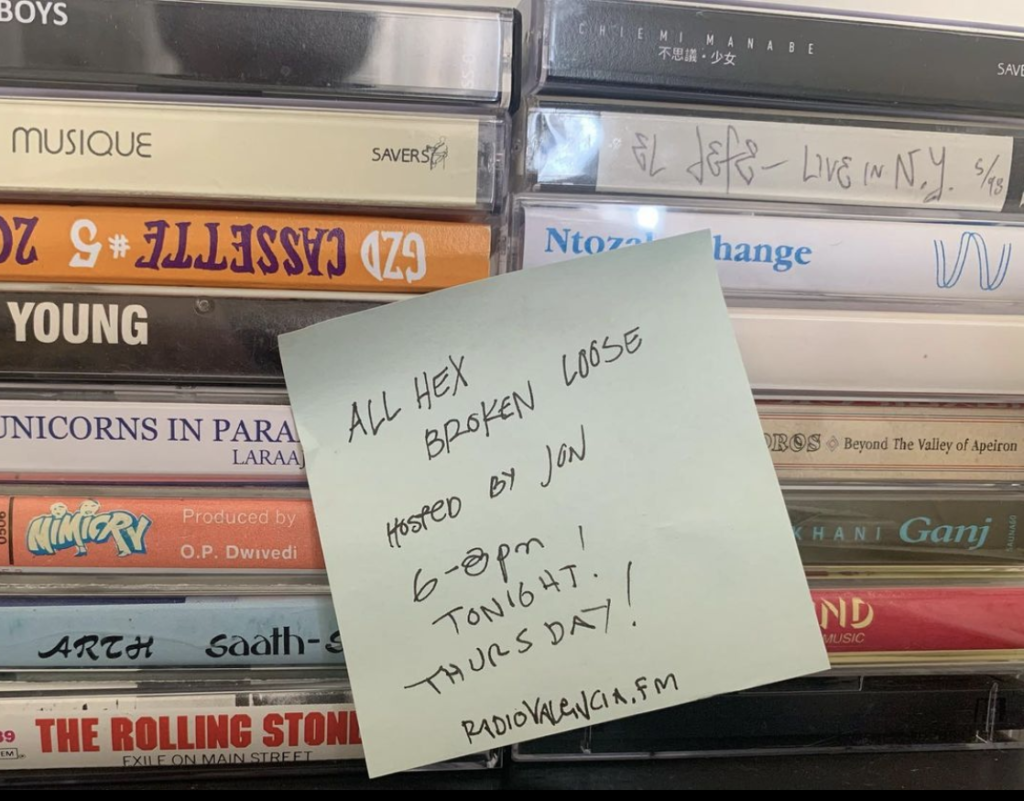 BOYS
MUSIQUE SAVERS
GZD CASSETTE #5
YOUNG
UNICORNS IN PARA
LARAAJ
0506
MIMICRY
Produced by
O.P. Dwivedi
ARTH saath-s
39
THE ROLLING STONE
EXILE ON MAIN STREET
CHIEMI MANABE
不思議・少女
SAVE
EL JEFE - LIVE IN N.Y. 5/98
Ntoza hange
OROS Beyond The Valley of Apeiron
KHANI Ganj
ND
MUSIC
ALL HEX
BROKEN LOOSE
HOSTED BY JON
6-8pm!
TONIGHT.
THURSDAY!
RADIOVALENCIA.FM